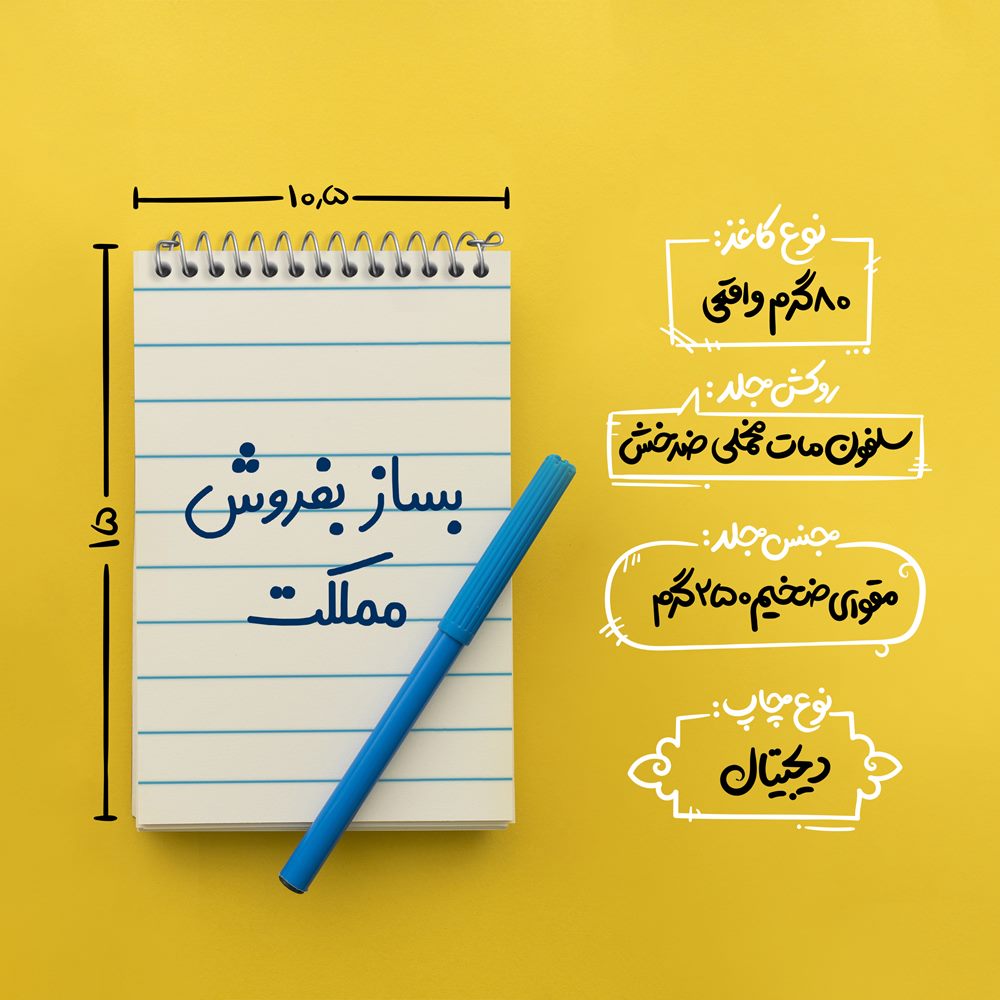 ۱۰٫۵
۱۵
بساز بفروش
مملکت
نوع کاغذ:
۸۰گرم واقعی
روکش جلد:
سلفون مات مخملی ضدخش
جنس جلد:
مقوای ضخیم ۲۵۰گرم
نوع چاپ:
دیجیتال